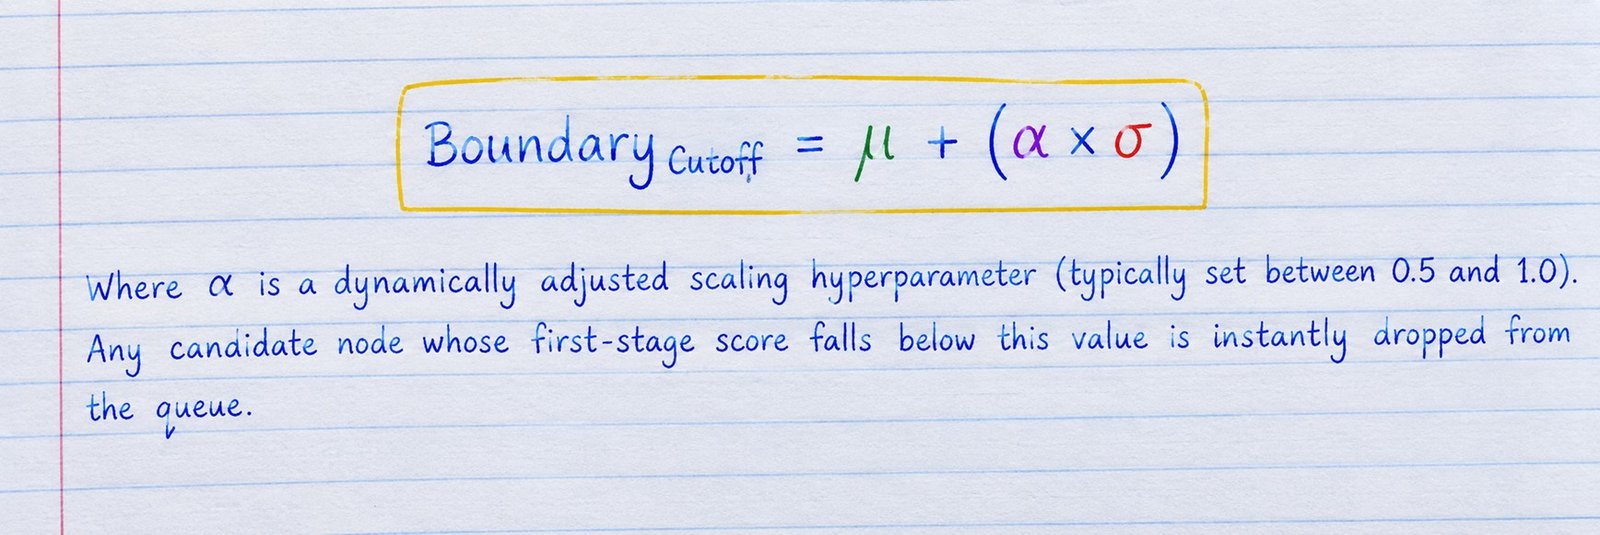 Boundary Cutoff = μ + (α × σ)
Where α is a dynamically adjusted scaling hyperparameter (typically set between 0.5 and 1.0).
Any candidate node whose first-stage score falls below this value is instantly dropped from
the queue.